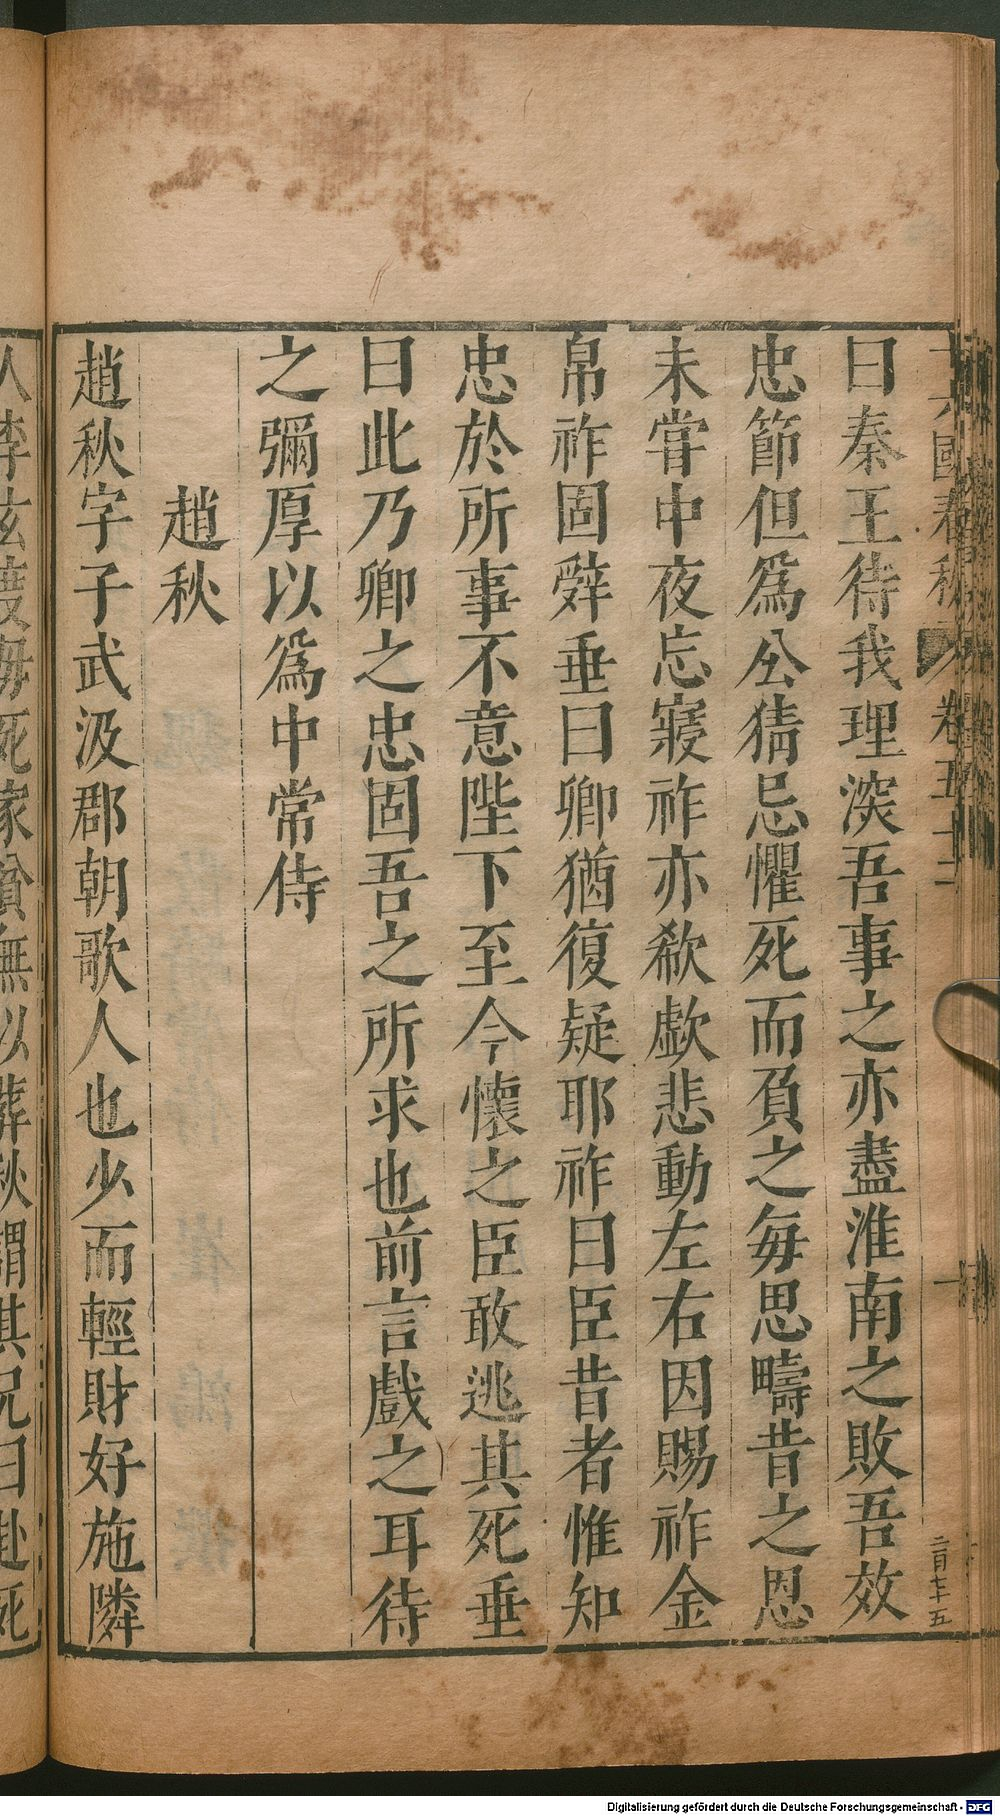 十六國春秋 卷五十
二百七十五
曰秦王待我理深吾事之亦盡淮南之敗吾效
忠節但爲公猜忌懼死而負之每思疇昔之恩
未嘗中夜忘寢祚亦欷歔悲動左右因賜祚金
帛祚固辭垂曰卿猶復疑耶祚曰臣昔者惟知
忠於所事不意陛下至今懷之臣敢逃其死垂
曰此乃卿之忠固吾之所求也前言戲之耳待
之彌厚以爲中常侍
趙秋
趙秋字子武汲郡朝歌人也少而輕財好施隣
人李玄度母死家貧無以葬秋謂其兄曰赴死
Digitalisierung gefördert durch die Deutsche Forschungsgemeinschaft - DFG